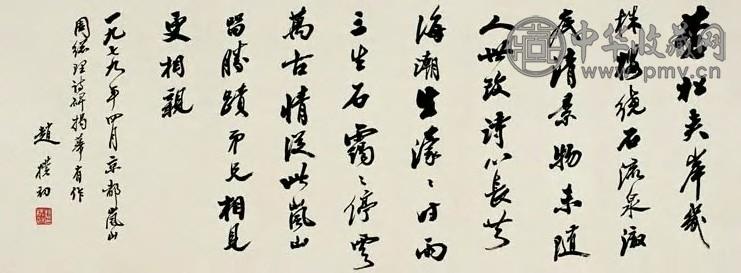 蒼松夾岸幾
株櫻繞石流泉澈
底清景物未隨
人世改詩心長共
海潮生濛〻時雨
三生石靄〻停雲
萬古情從此嵐山
留勝蹟弟兄相見
更相親
一九七九年四月京都嵐山
周總理詩碑揭幕有作
趙樸初
中华收藏网
www.pmv.cn